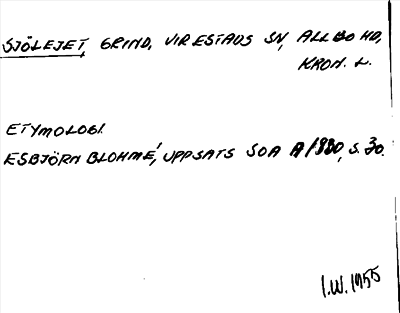 SJÖLEJET, GRIND, VIRESTADS SN, ALLBO HD,
KRON. L.
ETYMOLOGI.
ESBJÖRN BLOHMÉ, UPPSATS SOA A1880, S. 30.
I.W. 1955